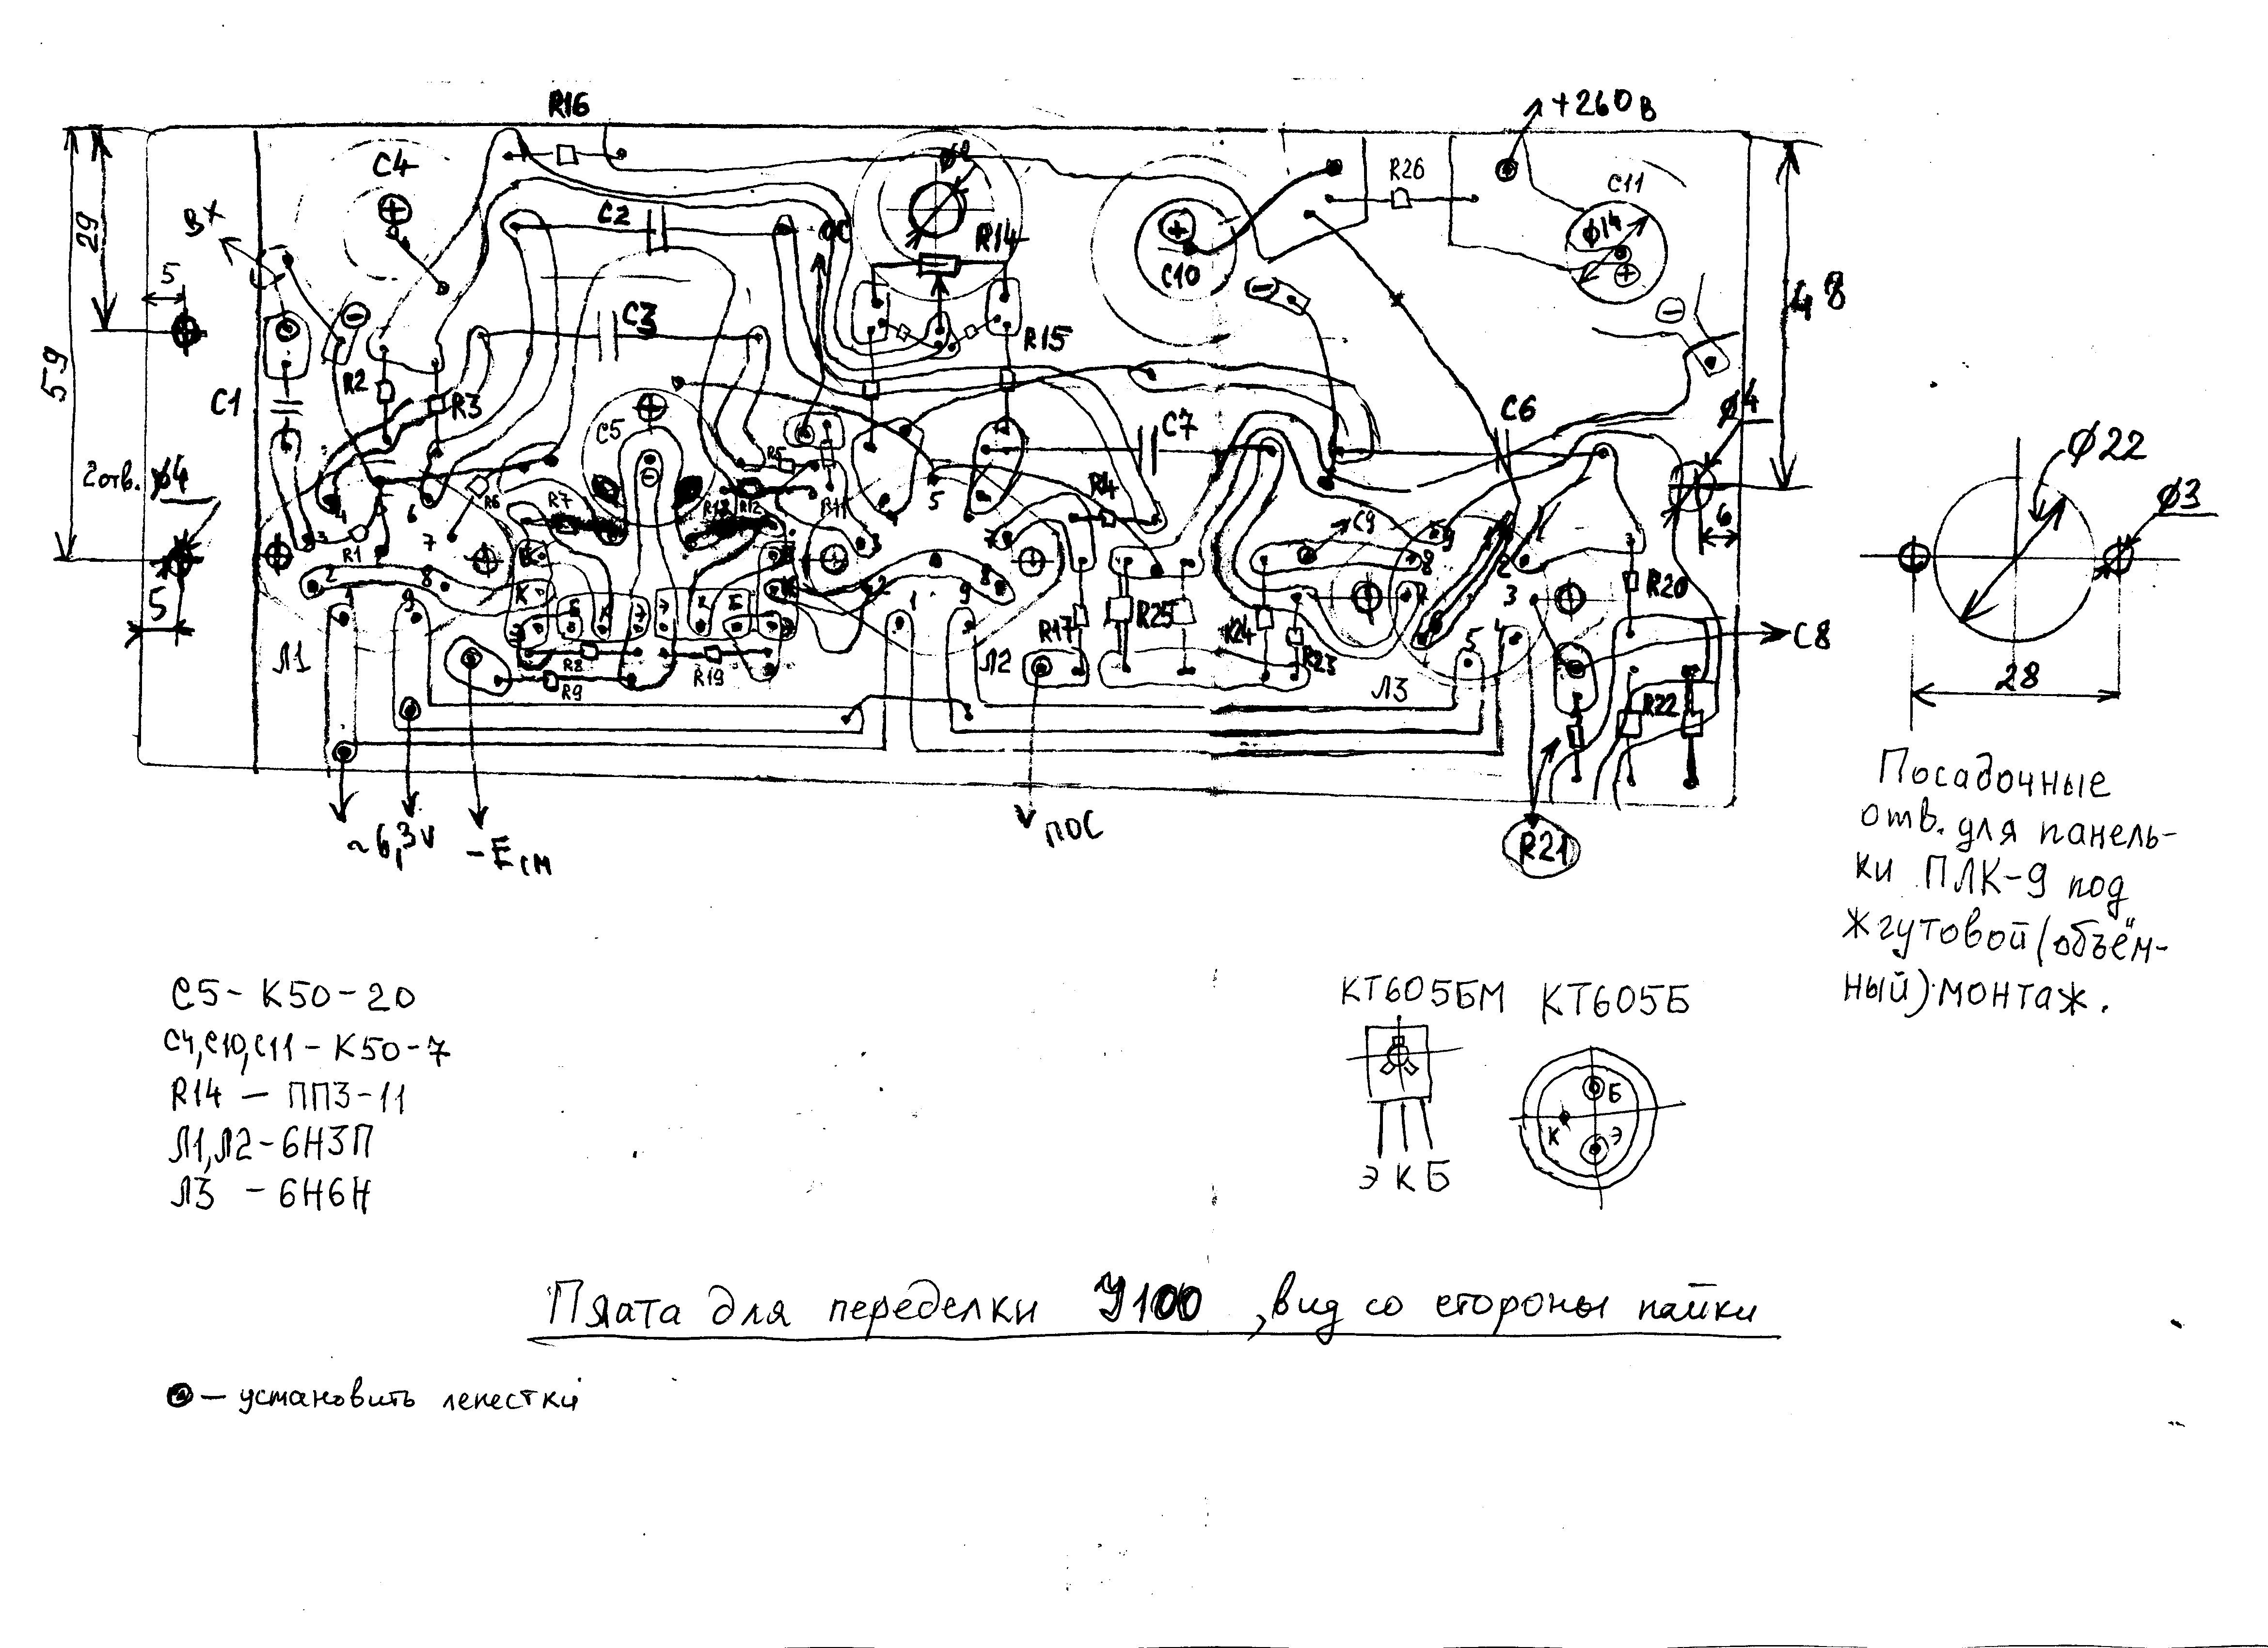 R16
+260 В
C4
ВХ
C2
ОС
R14
C10
R26
C11
ø14
29
5
59
48
C3
R15
R2
R3
C1
C5
C7
C6
ø4
2 отв. ø4
R6
R7
R4
C9
R1
5
6
R17
R25
R24
R23
R20
C8
Л1
R8
R9
R19
Л2
Л3
R22
~6,3v
-Eсм
ПОС
R21
ø22
ø3
28
Посадочные
отв. для панель-
ки ПЛК-9 под
жгутовой (объём-
ный) монтаж.
C5 - К50-20
C4, C10, C11 - К50-7
R14 — ПП3-11
Л1, Л2 - 6Н3П
Л3 - 6Н6Н
КТ605БМ КТ605Б
Э К Б
Б
К Э
Плата для переделки У100, вид со стороны пайки
— установить лепестки